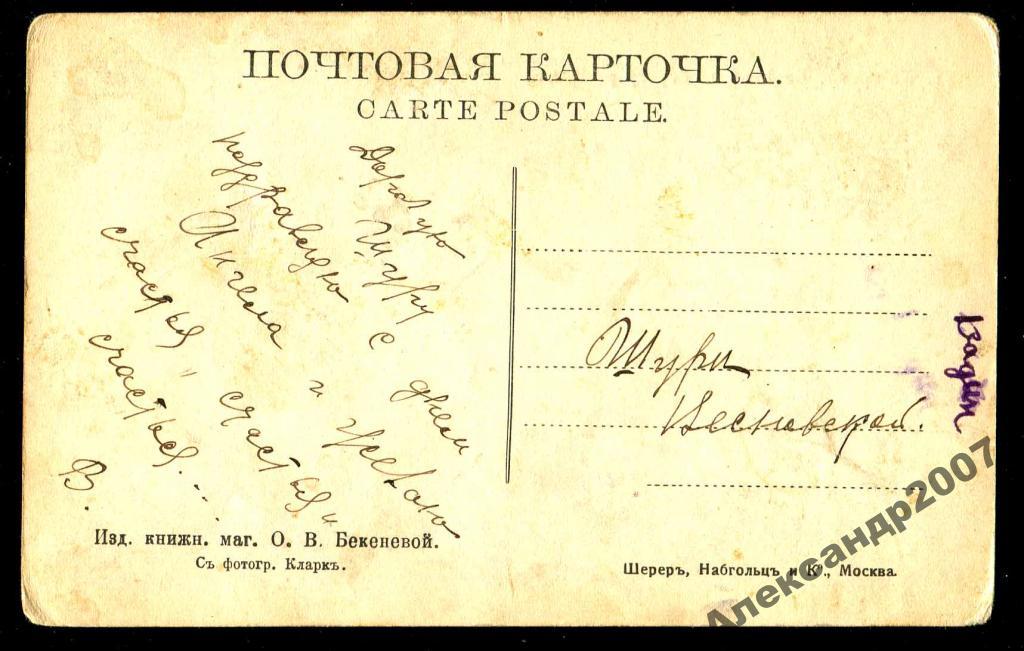 ПОЧТОВАЯ КАРТОЧКА.
CARTE POSTALE.
Дорогую Шуру с днем
поздравляю
Ангела и желаю
счастья " счастья "
счастья...
В.
Шуры
Весновской.
Вадим
Изд. книжн. маг. О. В. Бекеневой.
Съ фотогр. Кларкъ.
Шереръ, Набгольцъ и К°., Москва.
Александр2007